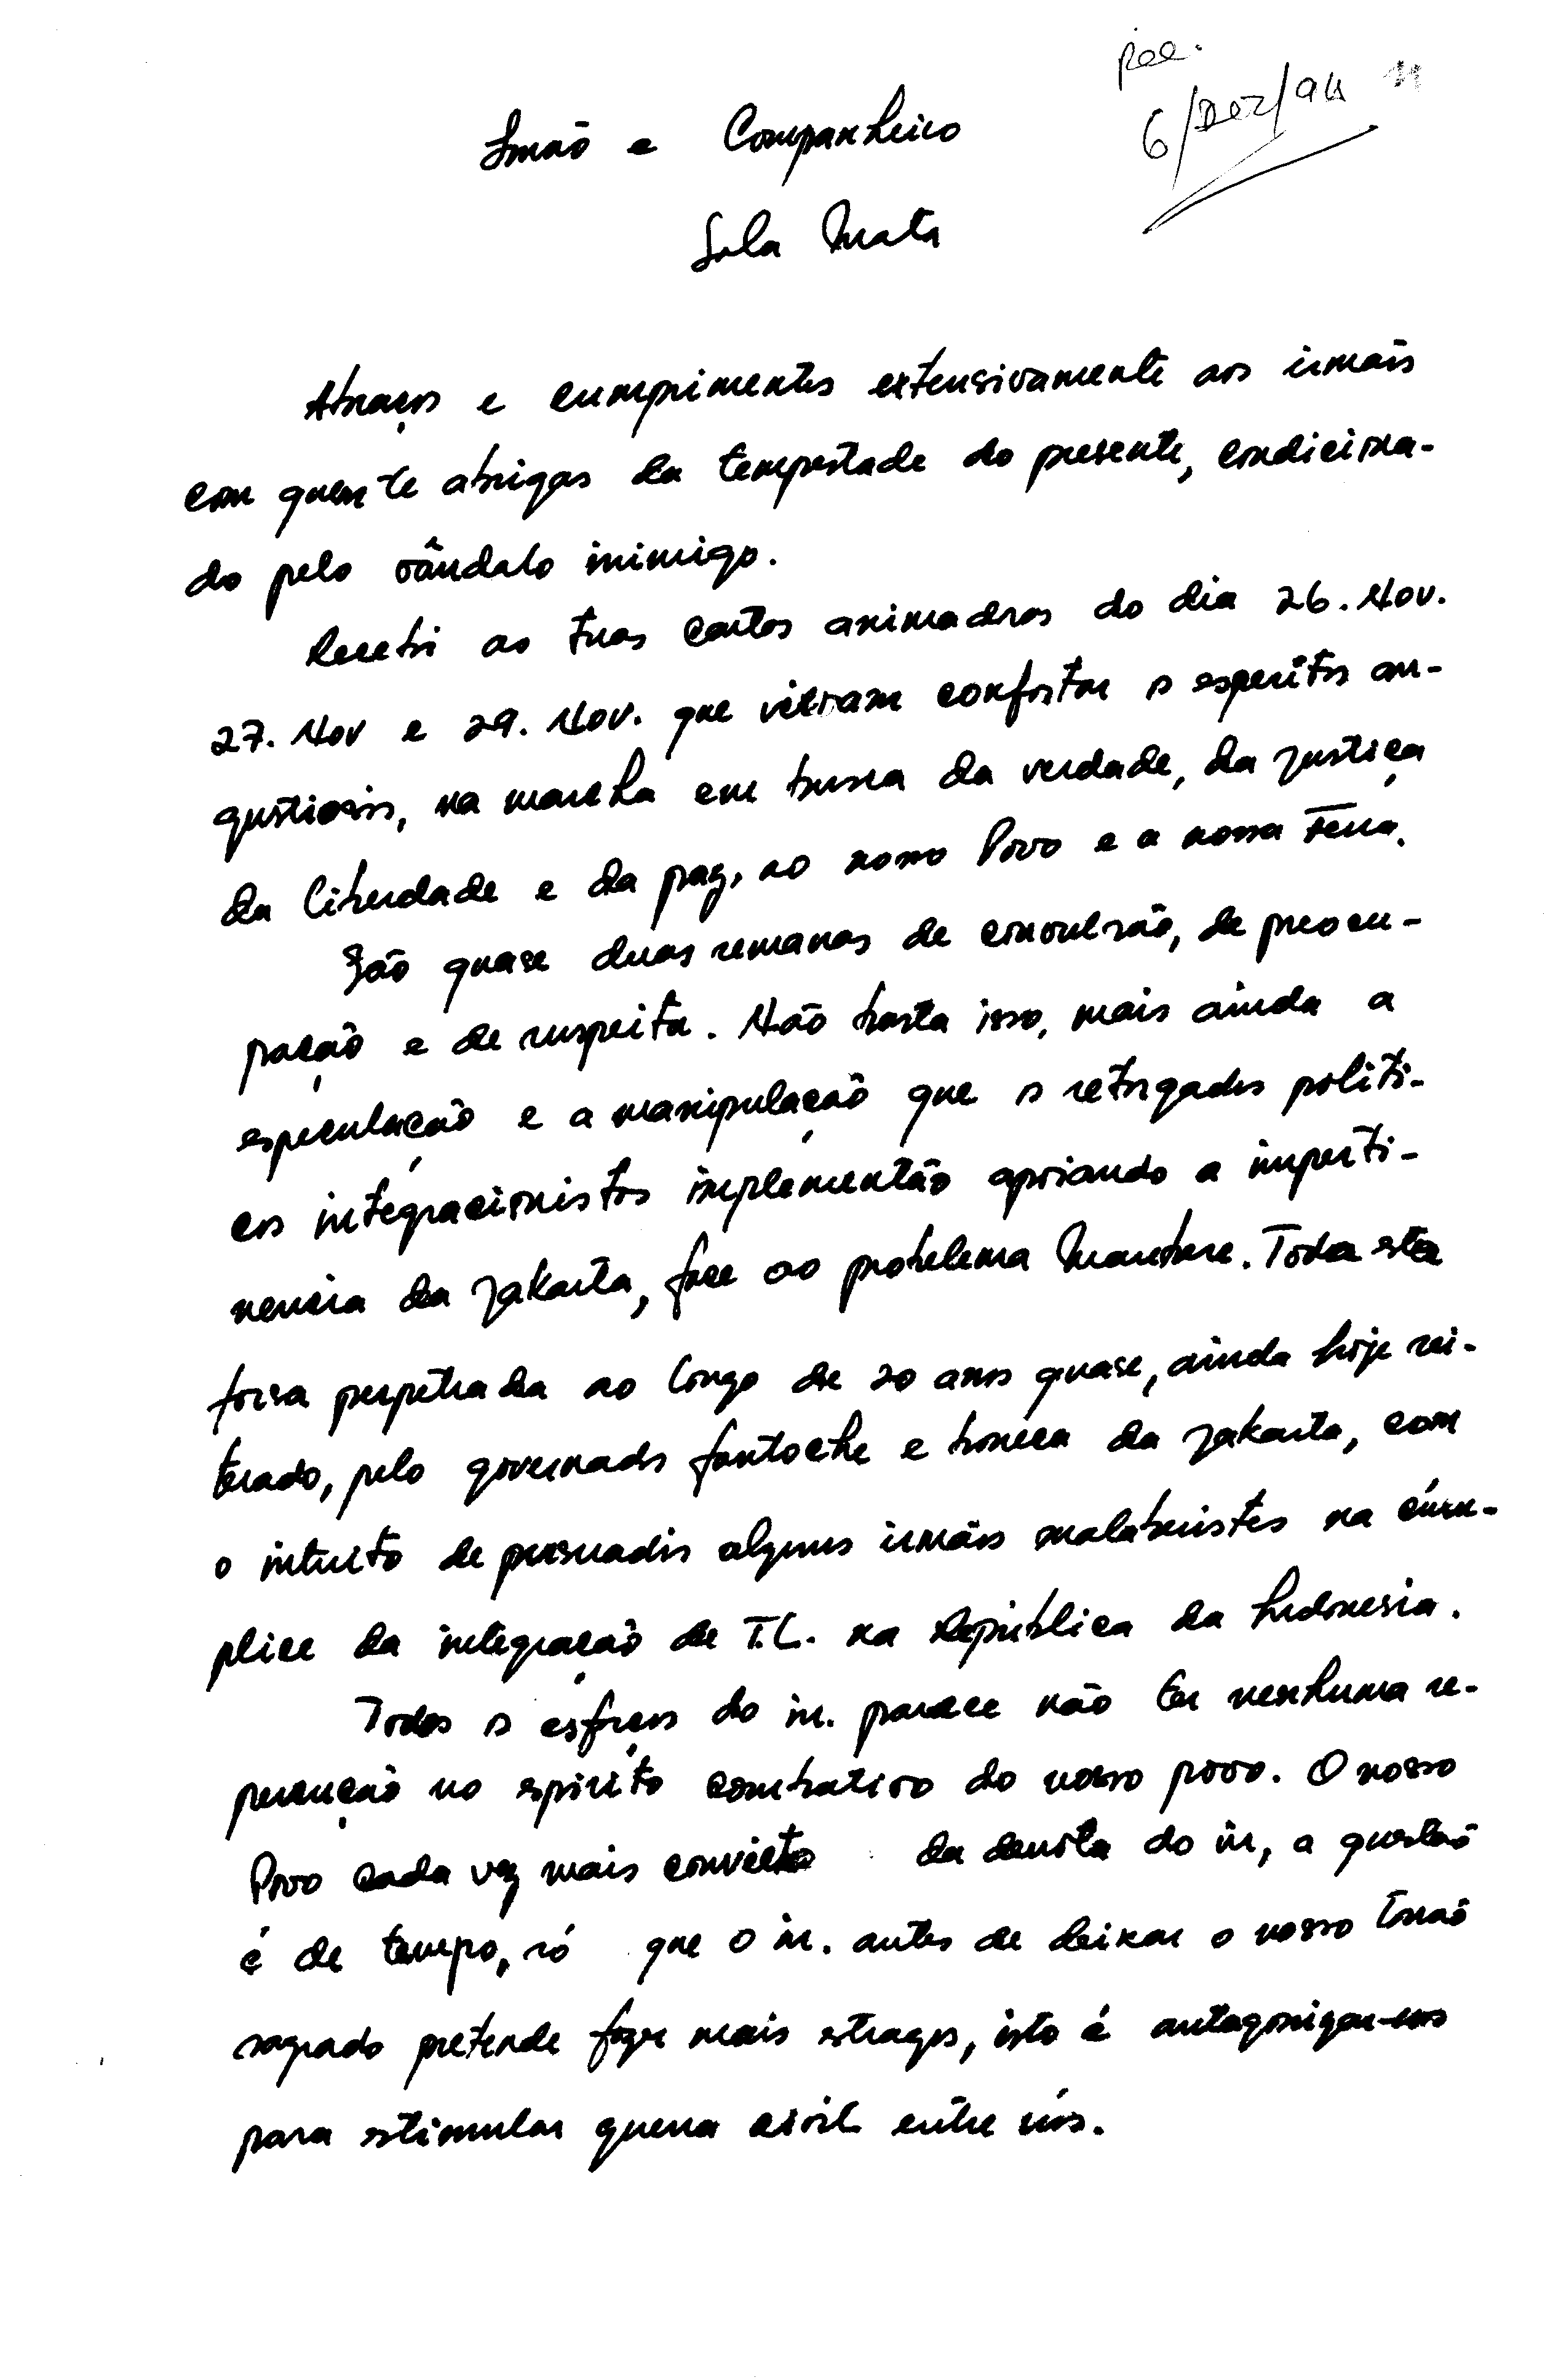 rec.
6/Dez/94
Irmão e Companheiro
Sola Mata
Abraços e cumprimentos extensivamente aos irmãos
com quem te abrigas da tempestade do presente, condiciona-
do pelo vândalo inimigo.
Recebi as tuas cartas animadoras do dia 26. Nov.
27. Nov e 29. Nov. que vieram confortar os esperitos an-
gustiosos, na marcha em busca da verdade, da justiça
da liberdade e da paz, ao nosso Povo e a nossa Terra.
São quase duas semanas de convulsão, de preocu-
pação e de suspeita. Não basta isso, mais ainda a
especulação e a manipulação que os retorgados politi-
cos integracionistas implementão apoiando a imperti-
nencia da Jakarta, face ao probelema Maubere. Toda esta
forsa perpetrada ao longo de 20 anos quase, ainda hoje rei-
terado, pelo governador fantoche e boneca da Jakarta, com
o intuito de persuadir alguns irmãos malabaristas na cúm-
plice da integração de T.L. na República da Indonesia.
Todos os esforços do in. parece não ter nenhuma re-
percução no espirito combativo do nosso povo. O nosso
Povo cada vez mais convicto da derrota do in, a questão
é de tempo, só que o in. antes de deixar o nosso
sagrado pretende fazer mais estragos, isto é antagonizar-nos
para estimular guerra civil entre nós.